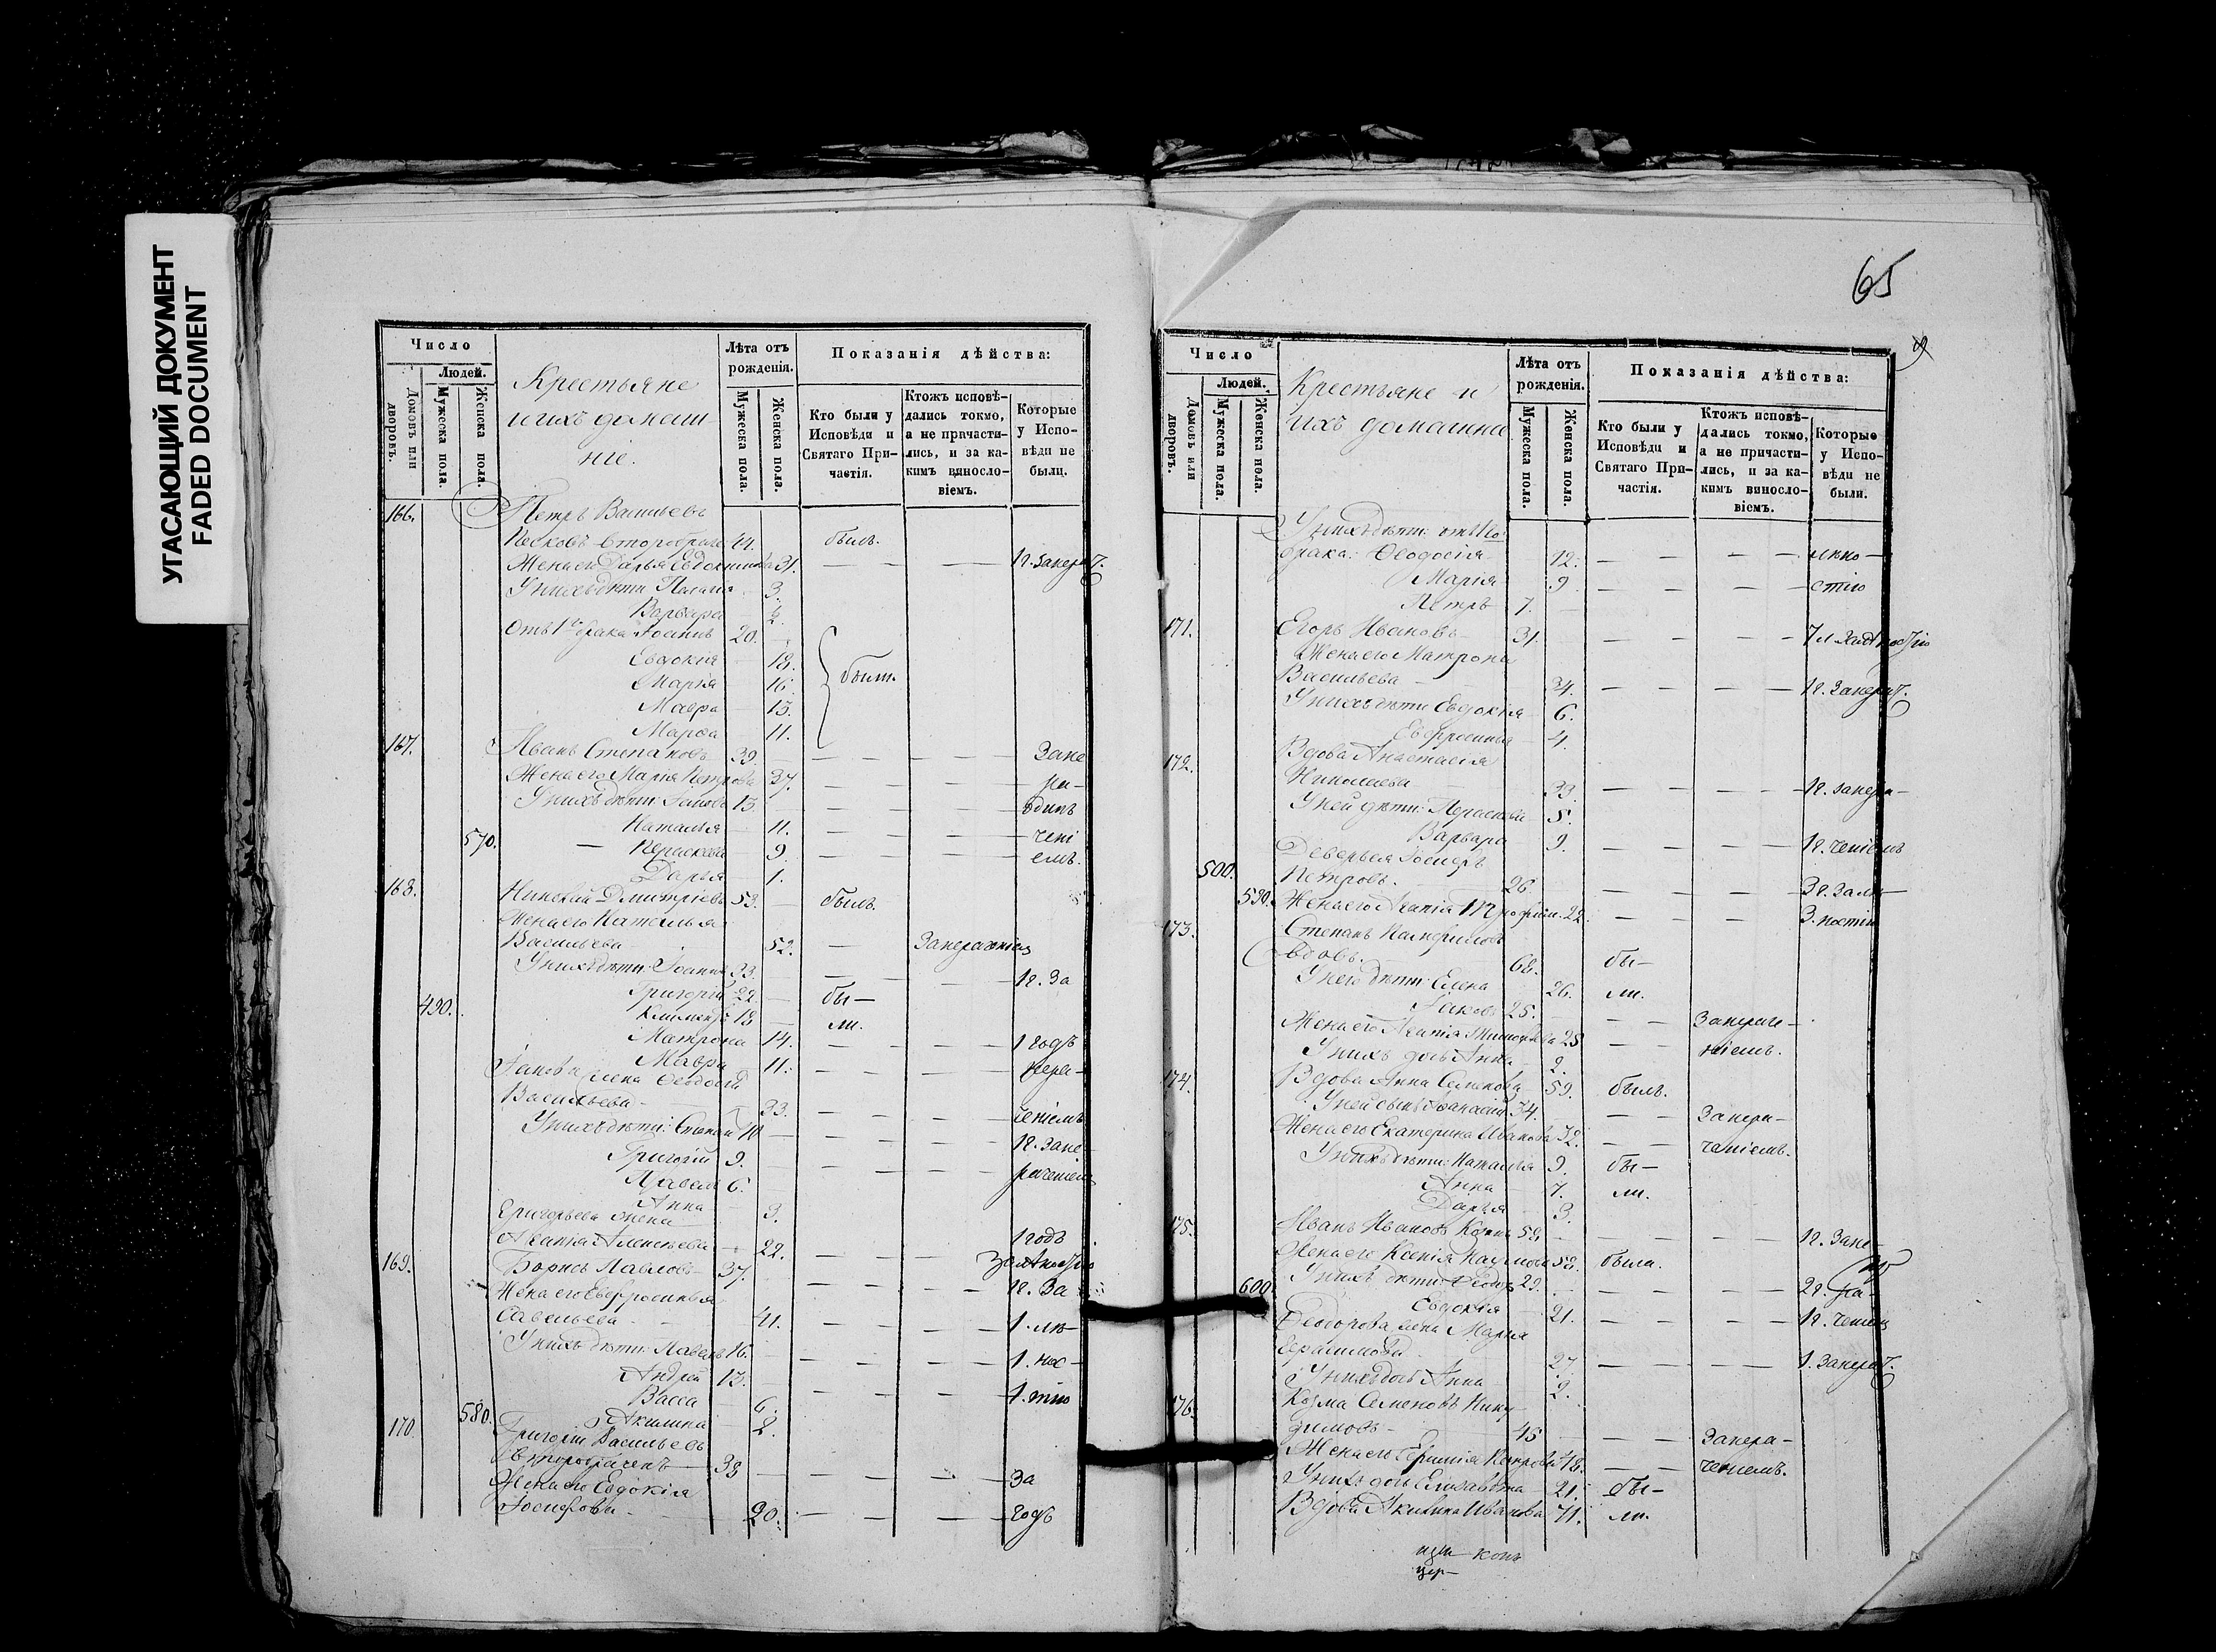 УГАСАЮЩИЙ ДОКУМЕНТ
FADED DOCUMENT
Число
Людей.
Домовъ или дворовъ.
Мужеска пола.
Женска пола.
Крестьяне
и ихъ домаш
ніе.
Лѣта отъ рожденія.
Мужеска пола.
Женска пола.
Показанія дѣйства:
Кто были у Исповѣди и Святаго Причастія.
Ктожъ исповѣдались токмо, а не причастились, и за какимъ винословіемъ.
Которые у Исповѣди не были.
166. Петръ Васильевъ
Песковъ второбрач 44. былъ.
Жена его Дарья Евдокимова 31. — — — 1 г. за нерач.
У нихъ дѣти Пелагія 3.
Варвара 2.
Отъ 1го брака Іоаннъ 20.
Евдокія 18.
Марія 16. были.
Мавра 13.
Марѳа 11.
167. Иванъ Степановъ 39. — — — — За не
Жена его Марія Петрова 37. — — — ра-
У нихъ дѣти: Іаковъ 13 — — — динъ
Наталья 11. — — — чені
570. — Пераскева 9. — — — емъ.
Дарья 1.
168. Николай Димитріевъ 53. — былъ.
Жена его Наталья
Васильева 52. — За нерачніем
У нихъ дѣти: Іоаннъ 33. — — — 1 г. За
Григорій 22. — бы-
490. Климентъ 18 — ли.
Матрона 14. — — — 1 годъ
Мавра 11. — — — нера-
Іакова жена Ѳеодосія
Васильева 33. — — — ченіемъ
У нихъ дѣти: Степанъ 10 — — — 1 г. За не-
Григорій 9. — — — раченіем
Павелъ 6.
Анна 3.
Григорьева жена 1 годъ
Агапія Алексѣева 22. — — — За лѣностію
169. Борисъ Павловъ 37. — — — 1 г. За
Жена его Евфросинья
Савельева 41. — — — 1. лѣ-
У нихъ дѣти: Павелъ 16. — — — 1. нос-
Андрей 13. — — — 1. тію
Васса 6.
580. Акилина 2.
170. Григорій Васильевъ
второбрачен 38 — — — За
Жена его Евдокія
Іосифова 20. — — — годъ
65
Число
Людей.
Домовъ или дворовъ.
Мужеска пола.
Женска пола.
Крестьяне и
ихъ домашніе
Лѣта отъ рожденія.
Мужеска пола.
Женска пола.
Показанія дѣйства:
Кто были у Исповѣди и Святаго Причастія.
Ктожъ исповѣдались токмо, а не причастились, и за какимъ винословіемъ.
Которые у Исповѣди не были.
У нихъ дѣти: отъ 1го
брака: Ѳеодосія 12. — — — лѣно-
Марія 9. — — — стію
Петръ 7.
171. Егоръ Ивановъ 31. — — — 7 л. За лѣностію
Жена его Матрона
Васильева 34. — — — 1 г. За нерач.
У нихъ дѣти Евдокія 6.
Евфросинья 4.
172. Вдова Анастасія
Николаева 33. — — — 1 г. за нера-
У ней дѣти: Пераскева 5.
Варвара 9. — — — 1 г. ченіемъ
Деверь ея Іосифъ
500. Петровъ. 26. — — — 3 г. За лѣ-
590. Жена его Агапія Трофим. 22. — — — 3. ностію
173. Степанъ Памфиловъ
вдовъ. 62. бы-
У него дѣти: Елена 26. ли.
Іаковъ 25. — — За нераче-
Жена его Агапія 25 — — ніемъ.
У нихъ дочь Анна 2.
174. Вдова Анна Семенова 59. былъ.
У ней сынъ Аѳанасій 34. — — За нера-
Жена его Екатерина Иванова 32. — — ченіемъ.
У нихъ дѣти: Наталья 9. бы-
Анна 7. ли.
Дарья 3.
175. Иванъ Ивановъ 59. — — — 1 г. За не-
Жена его Ксенія Наумова 58. была.
600. У нихъ дѣти: Ѳеодоръ 29. — — — 2 г. ра-
Евдокія 21. — — — 1 г. ченіем
Ѳеодорова жена Марія
Герасимова 27. — — — 1. За нерач.
У нихъ дочь Анна 2.
176. Козма Семеновъ Ники
димовъ 45 — — За нера-
Жена его Ефимія Петрова 48. — — ченіемъ.
У нихъ дочь Елизавета 21. бы-
Вдова Акилина Иванова 71. ли.